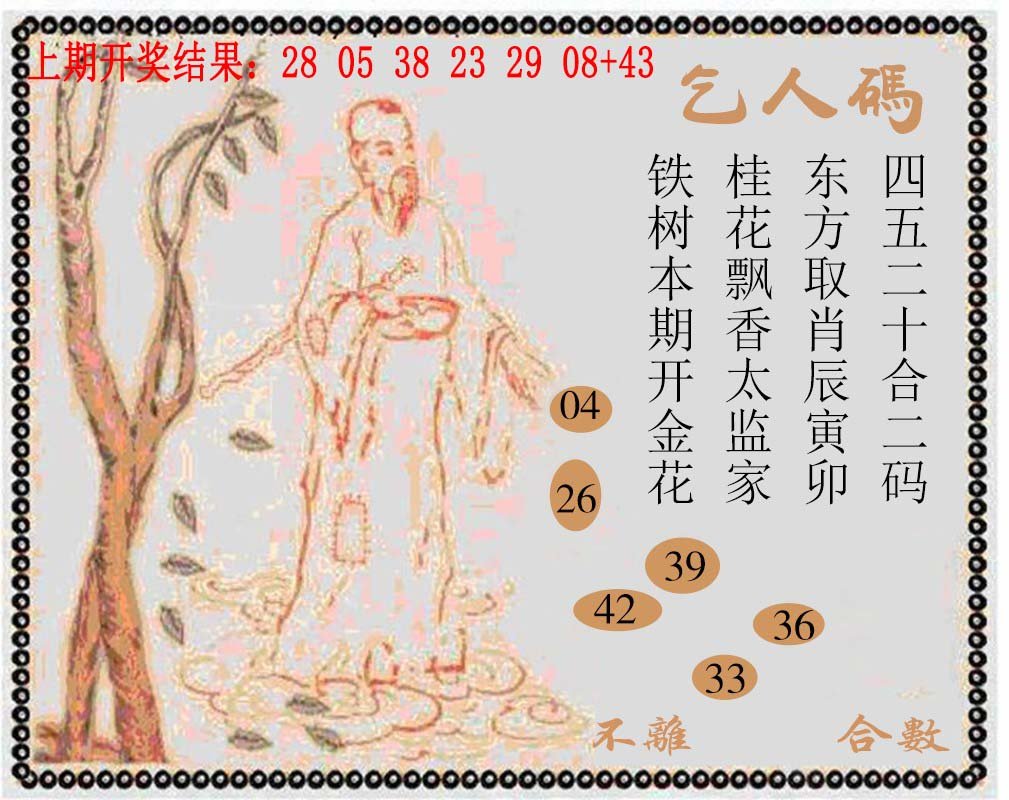 上期开奖结果：28 05 38 23 29 08+43
乞人碼
四五二十合二码
东方取肖辰寅卯
桂花飘香太监家
铁树本期开金花
04
26
39
42
36
33
不離 合數